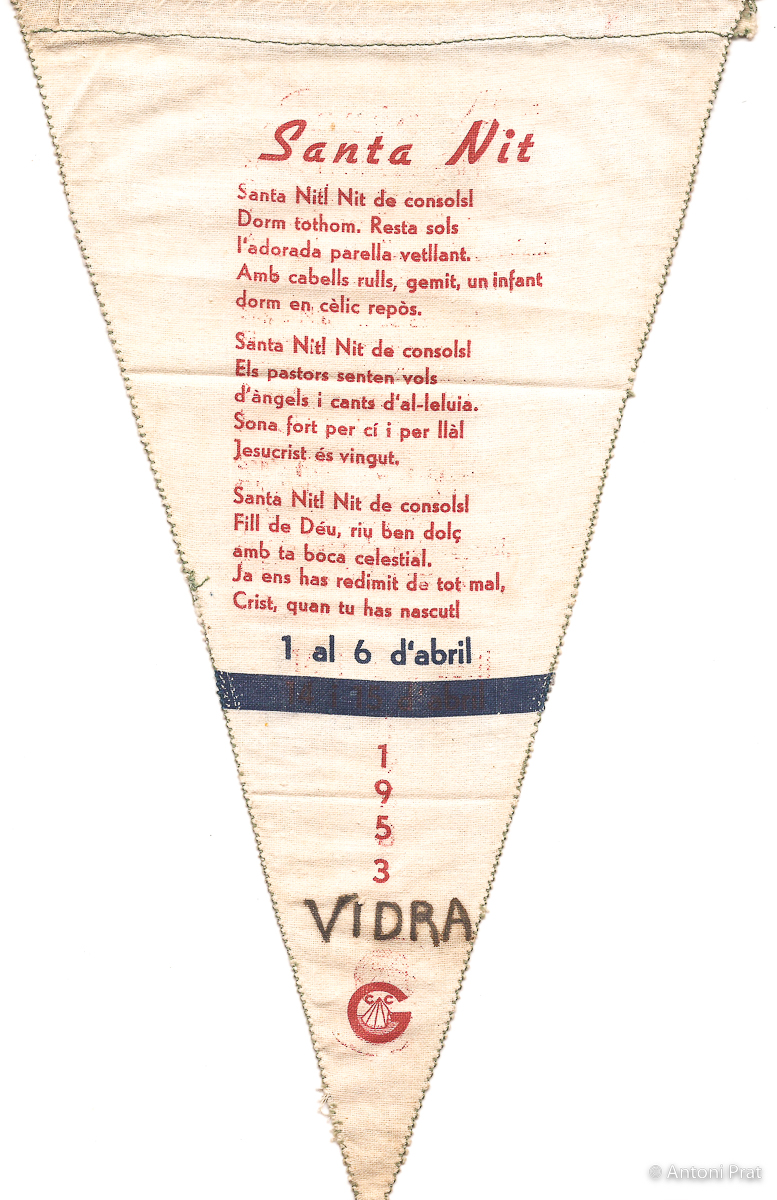 Santa Nit
Santa Nit! Nit de consols!
Dorm tothom. Resta sols
l'adorada parella vetllant.
Amb cabells rulls, gemit, un infant
dorm en cèlic repòs.
Santa Nit! Nit de consols!
Els pastors senten vols
d'àngels i cants d'al-leluia.
Sona fort per cí i per llàl
Jesucrist és vingut.
Santa Nit! Nit de consols!
Fill de Déu, riu ben dolç
amb ta boca celestial.
Ja ens has redimit de tot mal,
Crist, quan tu has nascut!
1 al 6 d'abril
1
9
5
3
VIDRA
C C
G
© Antoni Prat